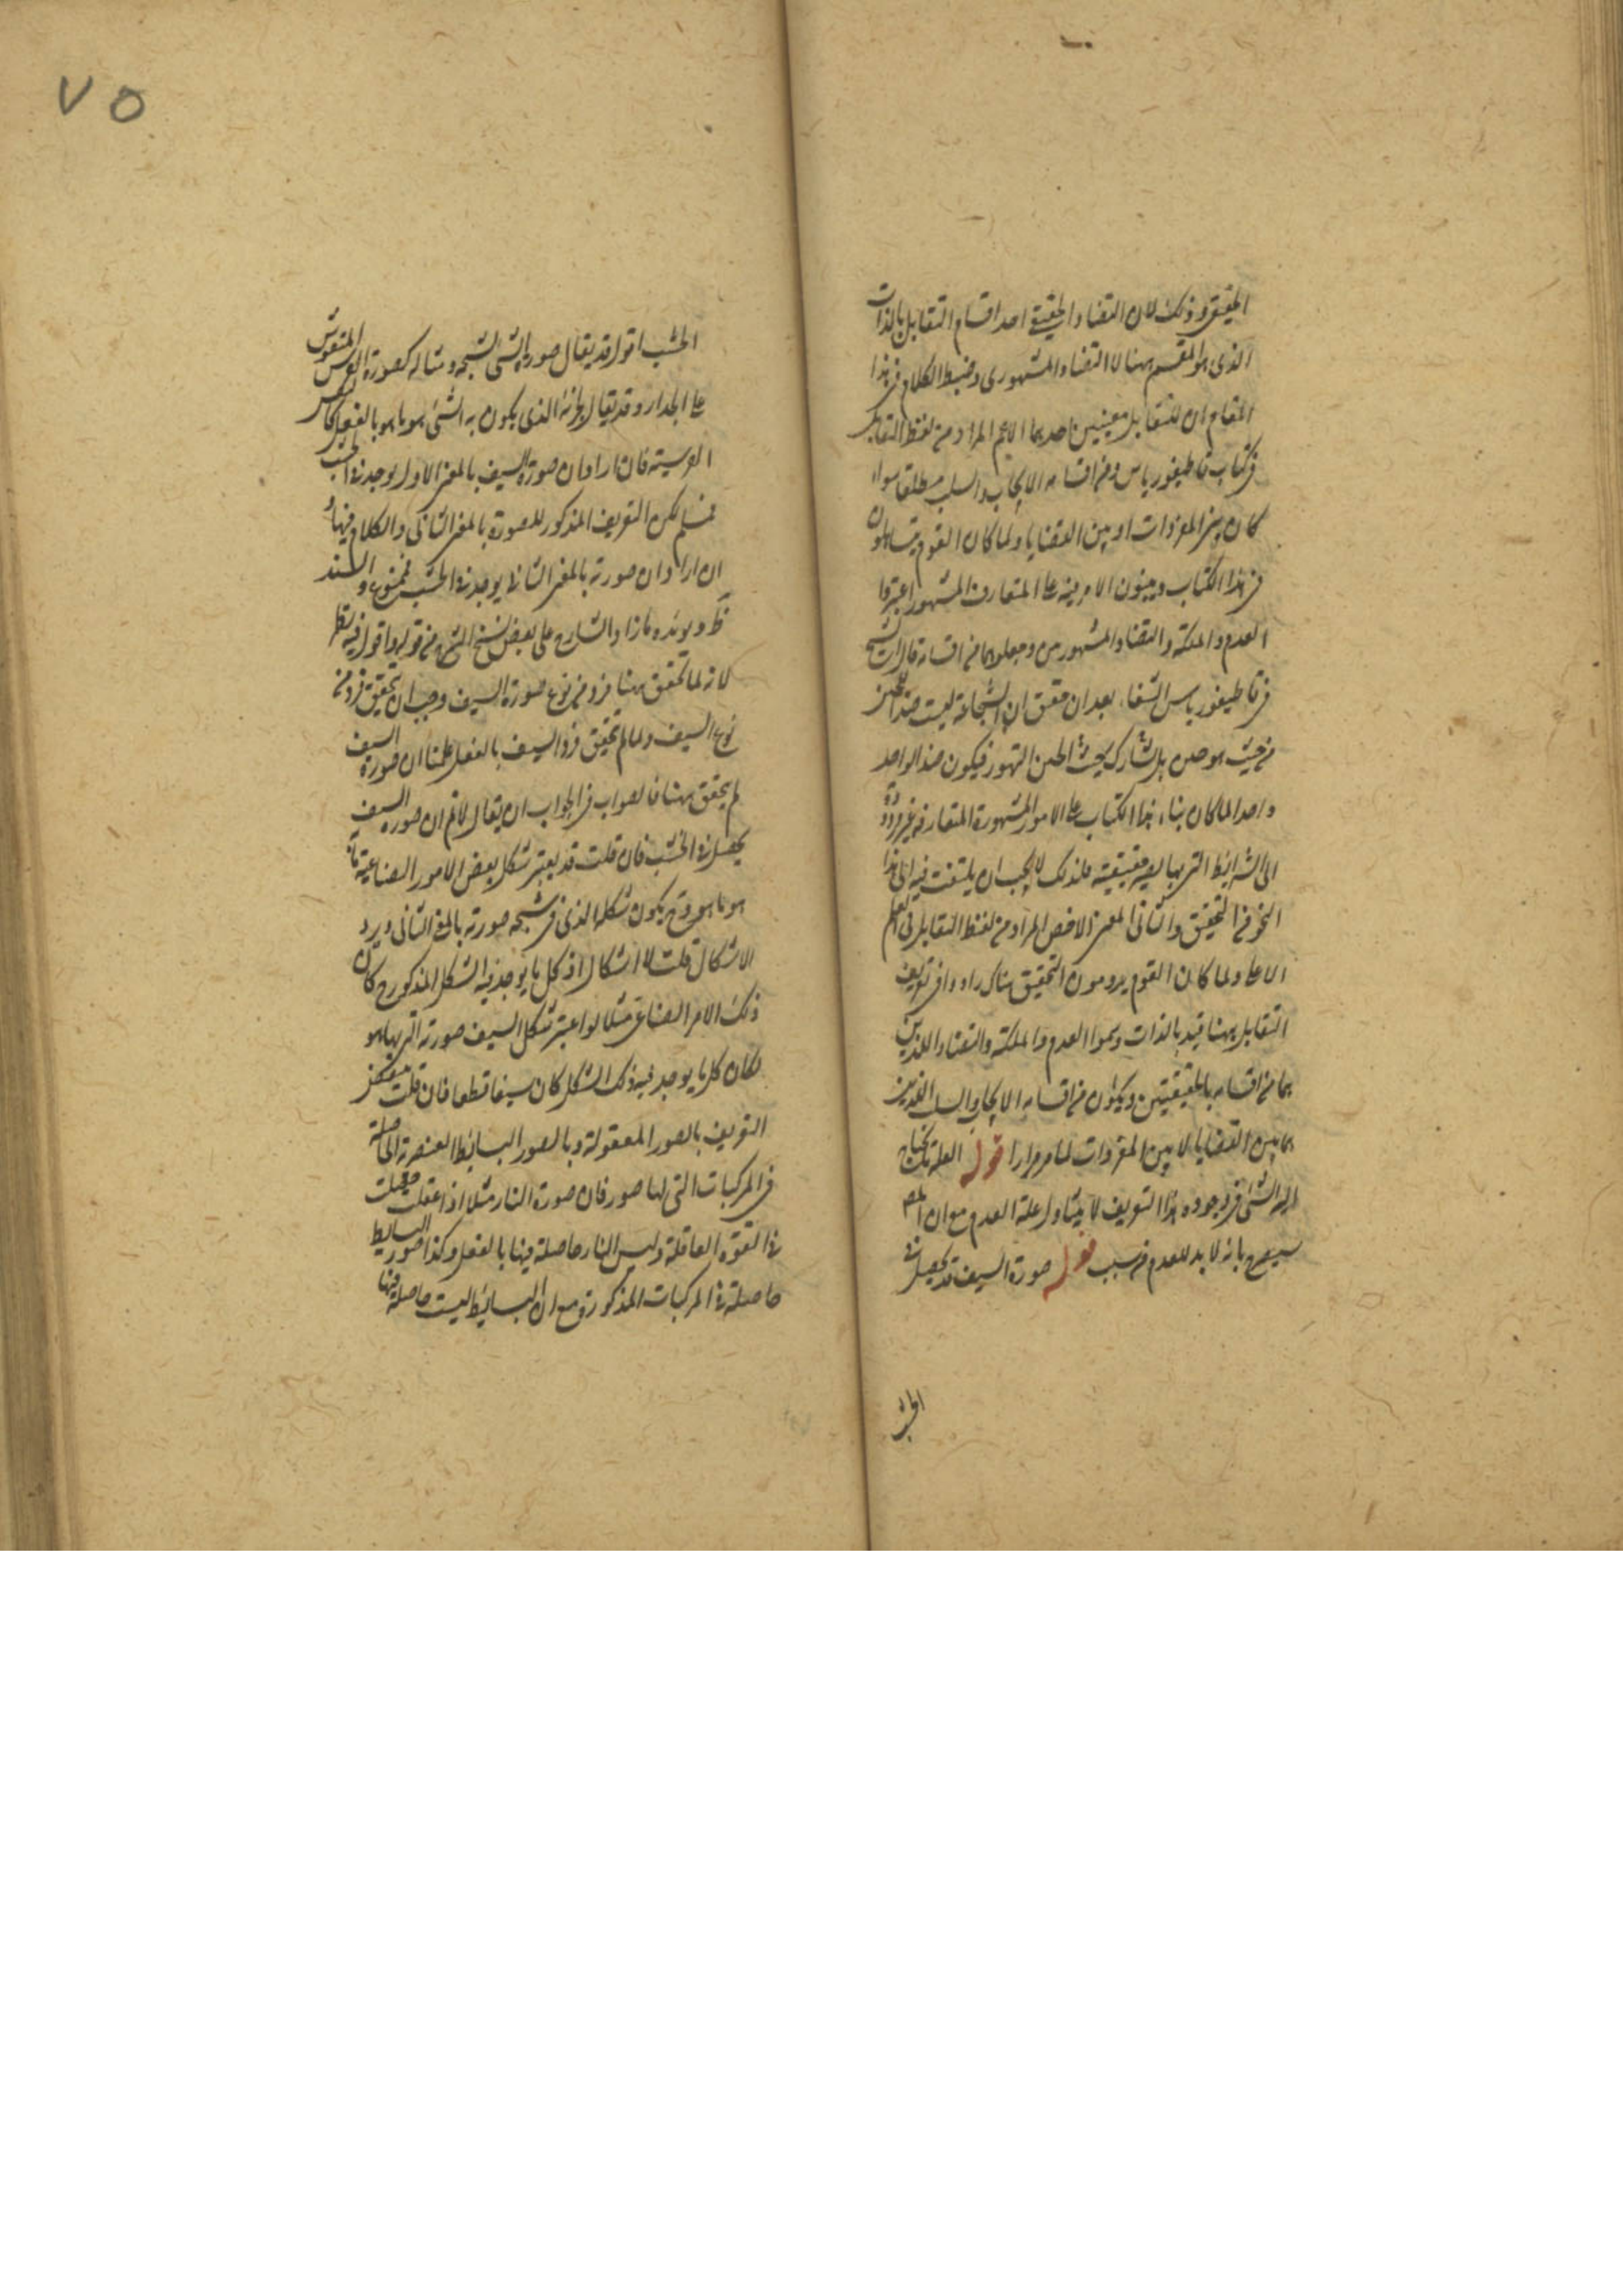 ٧٥
الحقيقي وذلك لان التضاد الحقيقي احد اقسام التقابل بالذات
الذى هو المقسم ههنا لا التضاد المشهورى وضبط الكلام فى هذا
المقام ان للتقابل معنيين احدهما الاعم المراد من لفظ التقابل
فى كتاب قاطيغورياس ومن اقسامه الايجاب والسلب مطلقا سواء
كان بين المفردات او بين القضايا ولما كان القوم يتساهلون
فى هذا الكتاب ويبنون الامر فيه على المتعارف المشهور اعتبروا
العدم والملكة والتضاد المشهورين وجعلوهما من اقسامه قال الشيخ
فى قاطيغورياس الشفاء بعد ان حقق ان الشجاعة ليست ضد الجبن
من حيث هو جبن بل تشارك بحيث الجبن التهور فيكون ضد الواحد
واحدا لما كان بناء هذا الكتاب على الامور المشهورة المتعارفة غير مردودة
الى الشرائط التى بها يصير حقيقية فلذلك لا يجب ان يلتفت فيه الى هذا
النحو من التحقيق والثانى المعنى الاخص المراد من لفظ التقابل فى العلم
الاعلى ولما كان القوم يرومون التحقيق هناك زادوا فى تعريف
التقابل ههنا قيد بالذات وسموا العدم والملكة والتضاد اللذين
هما من اقسامه بالحقيقيين ويكون من اقسامه الايجاب والسلب اللذين
هما بين القضايا لا بين المفردات لما مر مرارا قوله العلة ما يحتاج
اليه الشئ فى وجوده هذا التعريف لا يتناول علة العدم مع ان المص
سيصرح بانه لا بد للعدم من سبب قوله صورة السيف قد يحصل فى
الخشب
الخشب اقول قد يقال صورة الشئ لشبحه ومثاله كصورة الفرس المنقوش
على الجدار وقد يقال لجزئه الذى يكون به الشئ هو ما هو بالفعل كالنفس
الفرسية فان اراد ان صورة السيف بالمعنى الاول يوجد فى الخشب
فمسلم لكن التعريف المذكور للصورة بالمعنى الثانى والكلام فيها و
ان اراد ان صورته بالمعنى الثانى يوجد فى الخشب فممنوع والسند
ظ ويؤيده ما زاد الشارح على بعض نسخ الشرح من قوله واقول فيه نظر
لانه لما تحقق ههنا فرد من نوع صورة السيف وجب ان يتحقق فرد من
نوع السيف ولما لم يتحقق فرد السيف بالفعل علمنا ان صورة السيف
لم يتحقق ههنا فالصواب فى الجواب ان يقال لا نم ان صورة السيف
يحصل فى الخشب فان قلت قد يعتبر شكل بعض الامور الصناعية فى
هو ما هو وح يكون شكله الذى فى شبحه صورته بالمعنى الثانى ويرد
الاشكال قلت لا اشكال اذ كل ما يوجد فيه الشكل المذكور ح كان
ذلك الامر الصناعى مثلا لو اعتبر شكل السيف صورته التى بها هو
لكان كل ما يوجد فيه ذلك الشكل كان سيفا قطعا فان قلت ينتقض
التعريف بالصور المعقولة وبالصور البسائط العنصرية الحاصلة
فى المركبات التى لها صور فان صورة النار مثلا اذا عقلت حصلت
فى القوة العاقلة وليس النار حاصلة فيها بالفعل وكذا صور البسايط
حاصلة فى المركبات المذكورة مع ان البسائط ليست حاصلة فيها